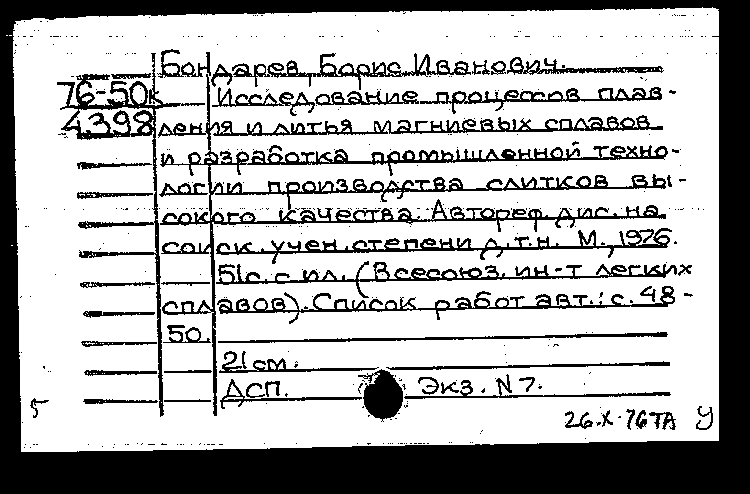 Бондарев, Борис Иванович.
76-50к Исследование процессов плав-
4398 ления и литья магниевых сплавов
и разработка промышленной техно-
логии производства слитков вы-
сокого качества. Автореф. дис. на
соиск. учен. степени д.т.н. М., 1976.
51с. с ил. (Всесоюз. ин-т легких
сплавов). Список работ авт.: с. 48-
50.
21 см.
ДСП. Экз. N 7.
5
26.X.76 ТА У